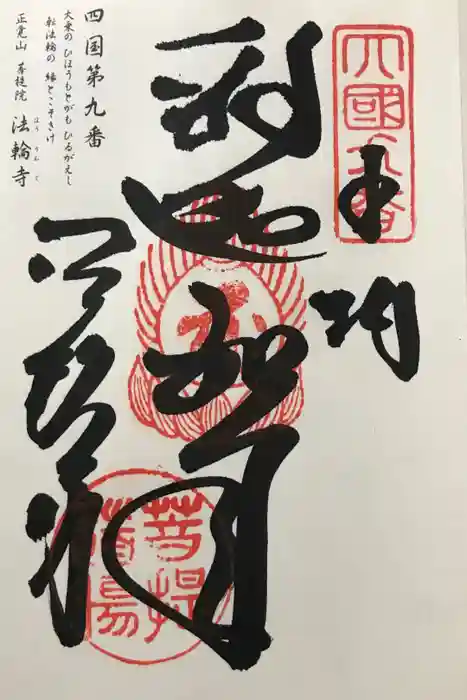 四國九番
奉納
釈迦如来
法輪寺
菩提
四国第九番
大乗の ひほうもとがも ひるがえし
転法輪の 縁とこそきけ
正覚山 菩提院 法輪寺
ほう りん じ